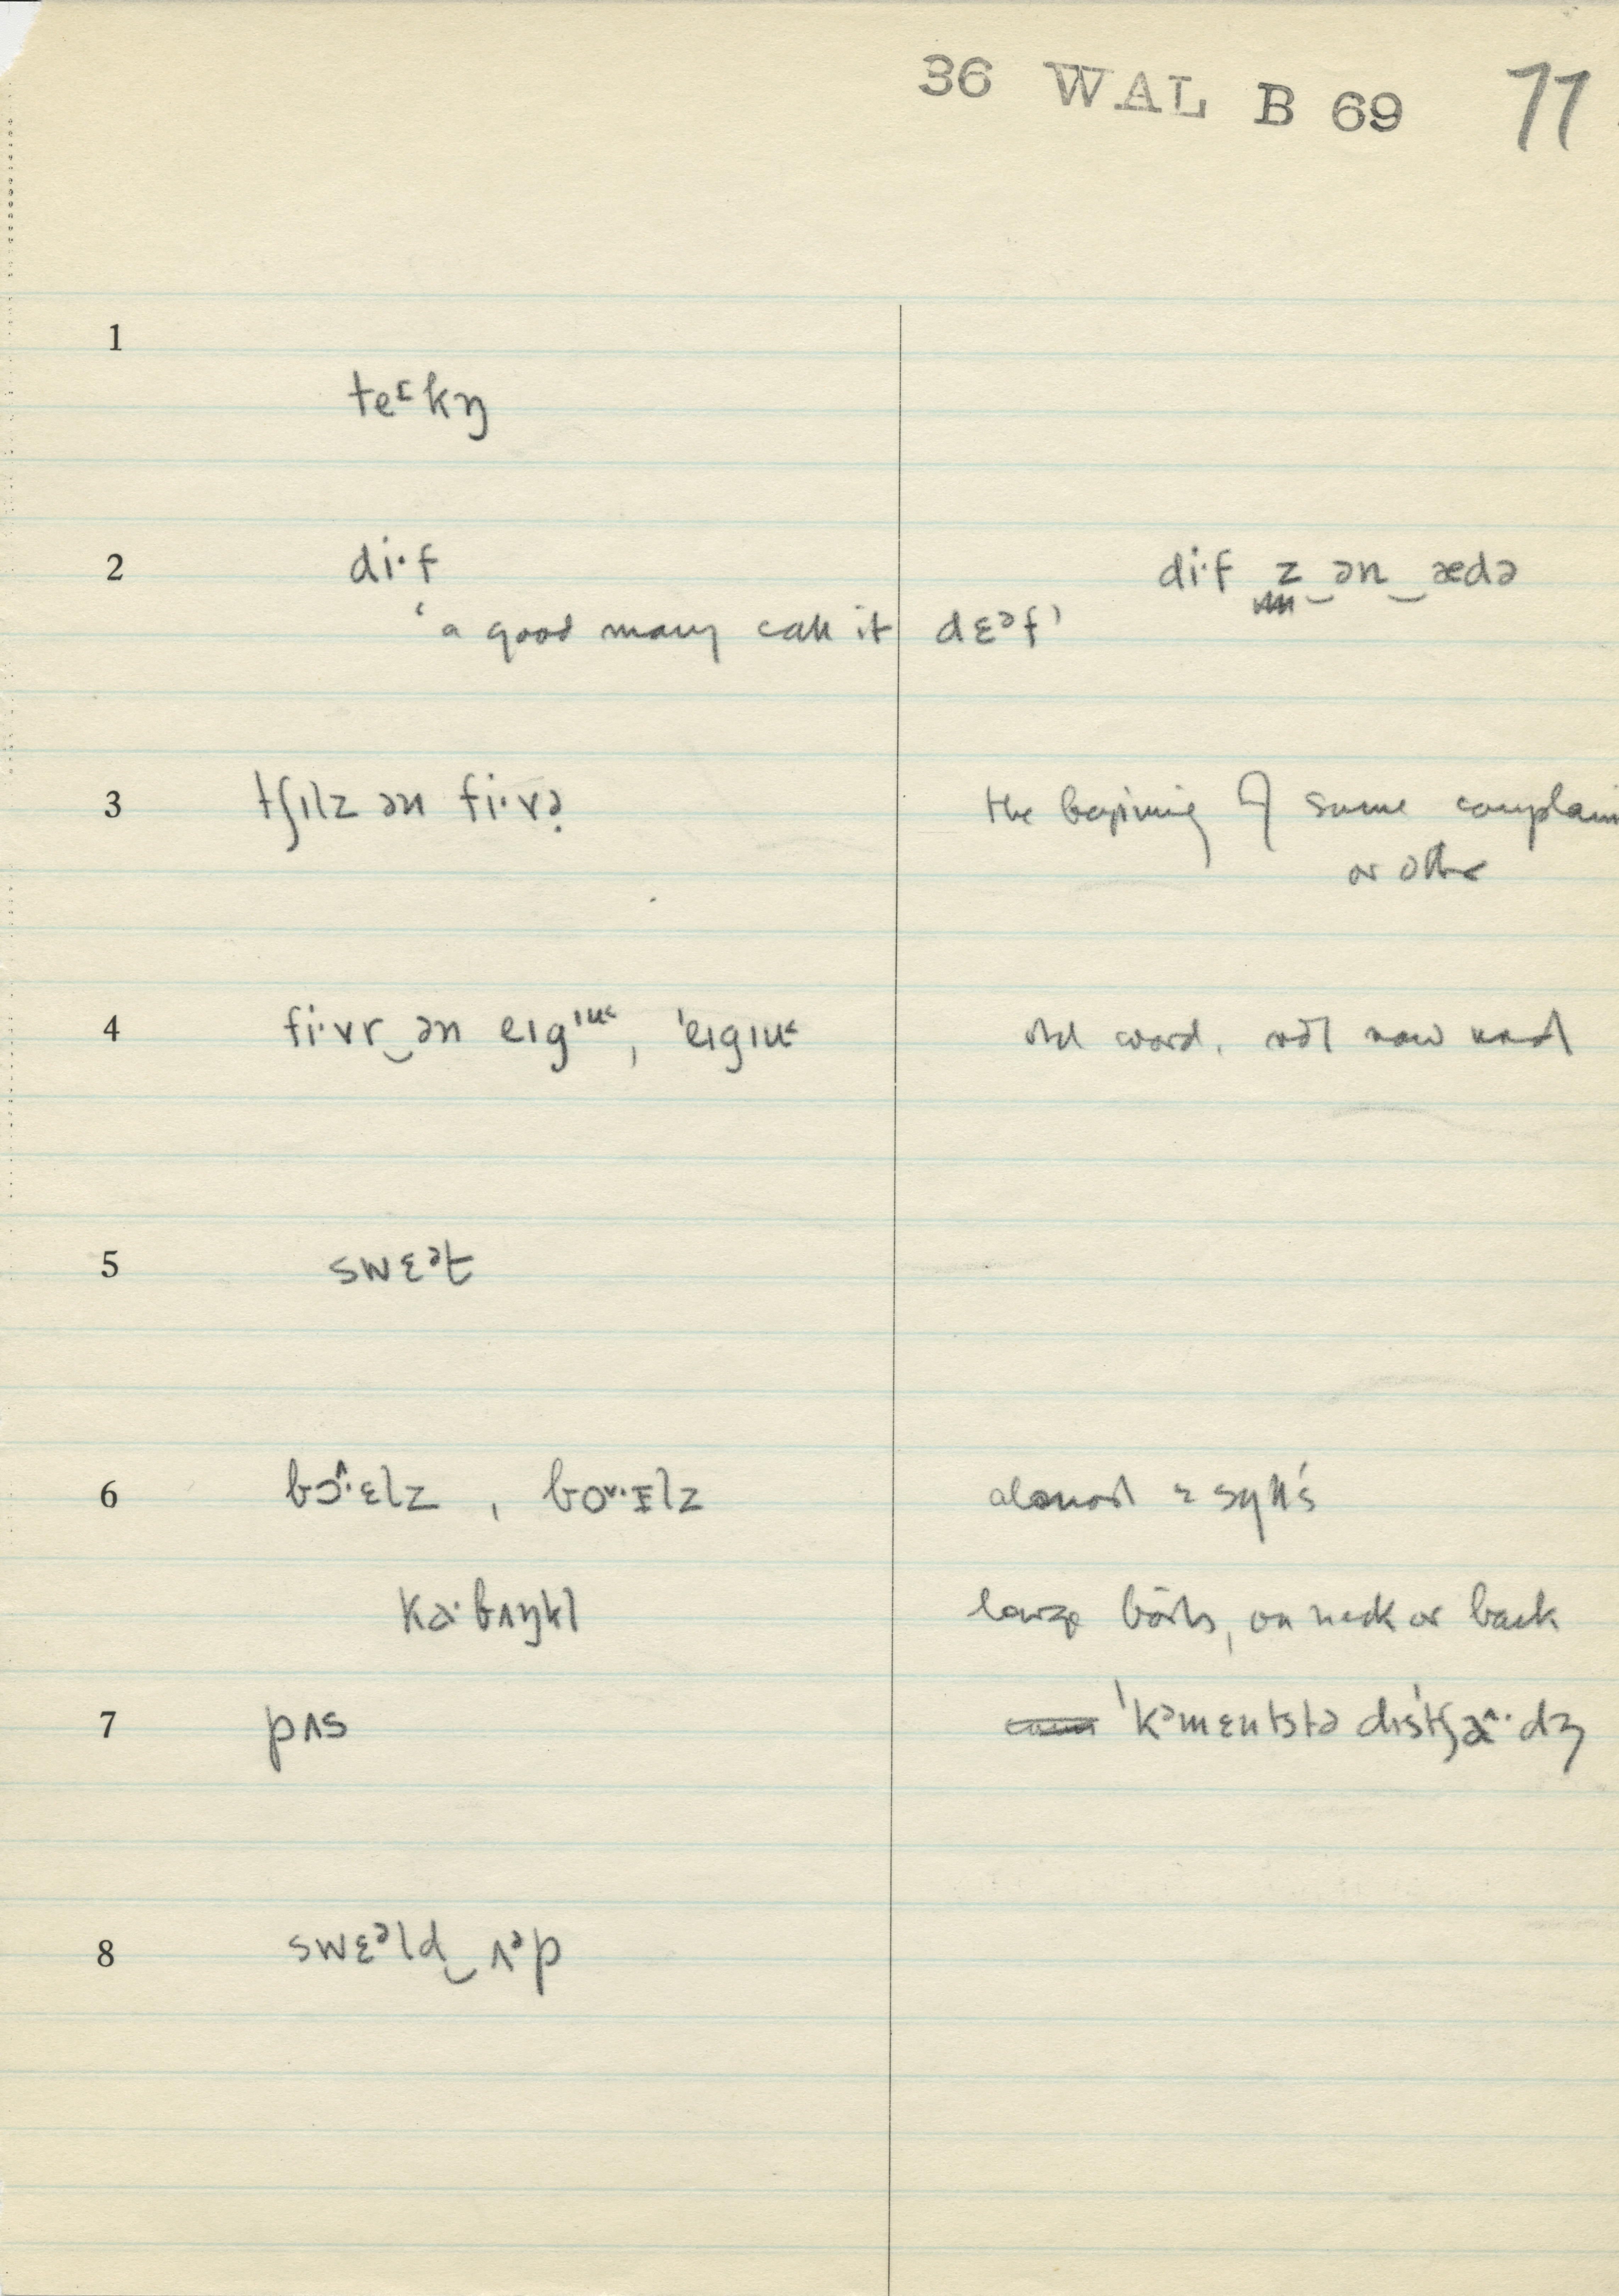 36 WAL B 69 77
1
teᶦkŋ
2 di·f di·f z‿ən‿ædə
‘a good many call it dɛᵊf’
3 tʃɪlz ən fi·və the beginning of some complain
or other
4 fi·vr‿ən eɪgɪu, ˈeɪgɪu old word, not now used
5 swɛᵊt
6 bɔ^·ɛlz, boᵛ·ɪlz almost 2 syll's
kə·bʌŋkl large boils, on neck or back
7 pʌs ˈkᵊmɛntstə dɪsˈtʃɑ^·dʒ
8 swɛᵊld‿ʌᵊp